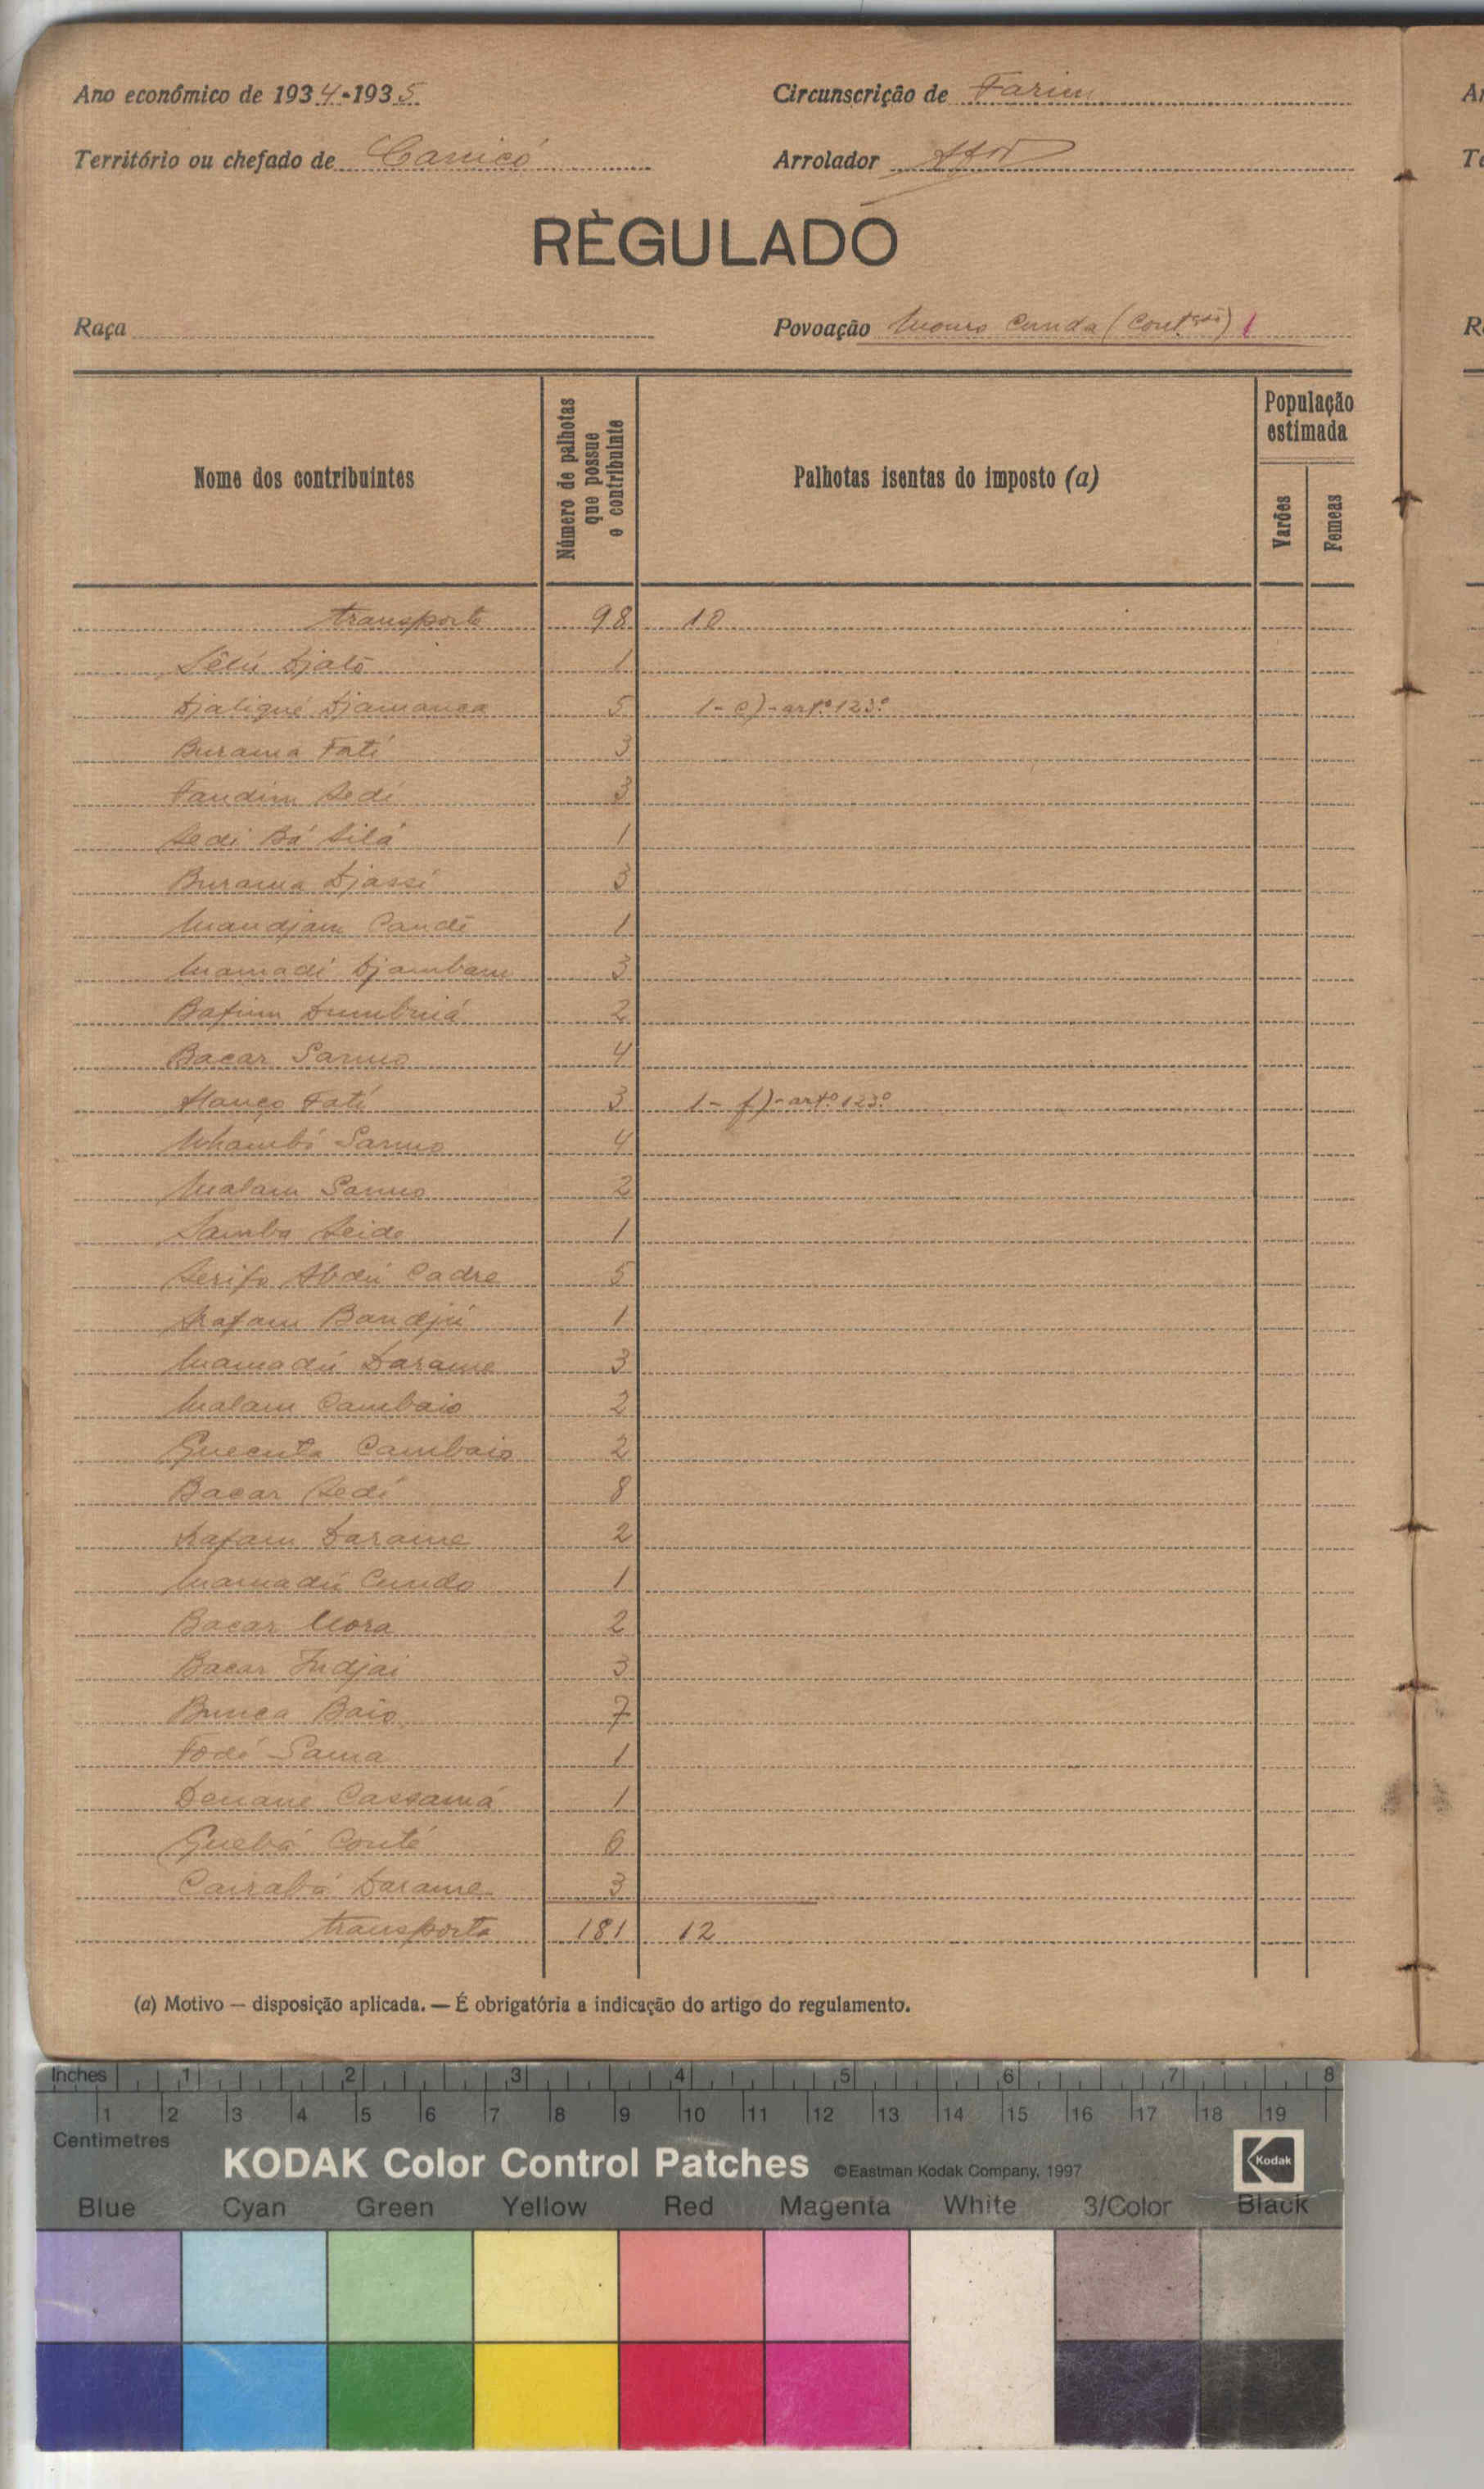 Ano económico de 1934-1935
Circunscrição de Farim
Território ou chefado de Canicó
Arrolador
RÈGULADO
Raça
Povoação Cunda (Cont.) 1
Nome dos contribuintes
Número de palhotas que possue o contribuinte
Palhotas isentas do imposto (a)
População estimada
Varões
Femeas
transporte 98 10
Djaló 1
Djaliqué Djamanca 5 1-c)-artº 123º
Burama Fati 3
Fandim Sedi 3
Sedi Bá Silá 1
Burama Djassi 3
Mandjam Candé 1
Mamadi Djambam 3
Bafum Dumbuiá 2
Bacar Sanno 4
Fati 3 1-f)-artº 123º
Sanno 4
Malam Sanno 2
Samba Seide 1
Serifo Abdú Cadre 5
Bandjú 1
Mamadú Darame 3
Malam Cambaio 2
Quecuta Cambaio 2
Bacar Sedi 8
Darame 2
Mamadú Cundo 1
Bacar Mora 2
Bacar Indjai 3
Bunca Baio 7
Fodé Sama 1
Denane Cassamá 1
Quebá Conté 6
Cairabá Darame 3
transporte 181 12
(a) Motivo — disposição aplicada. — É obrigatória a indicação do artigo do regulamento.
Inches 1 2 3 4 5 6 7 8
1 2 3 4 5 6 7 8 9 10 11 12 13 14 15 16 17 18 19
Centimetres
KODAK Color Control Patches ©Eastman Kodak Company, 1997 Kodak
Blue Cyan Green Yellow Red Magenta White 3/Color Black